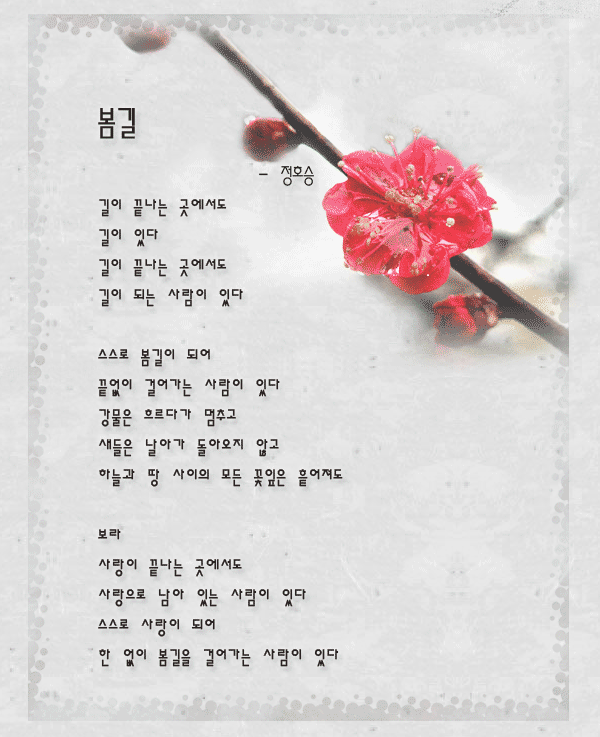 봄길
- 정호승
길이 끝나는 곳에서도
길이 있다
길이 끝나는 곳에서도
길이 되는 사람이 있다
스스로 봄길이 되어
끝없이 걸어가는 사람이 있다
강물은 흐르다가 멈추고
새들은 날아가 돌아오지 않고
하늘과 땅 사이의 모든 꽃잎은 흩어져도
보라
사랑이 끝나는 곳에서도
사랑으로 남아 있는 사람이 있다
스스로 사랑이 되어
한 없이 봄길을 걸어가는 사람이 있다